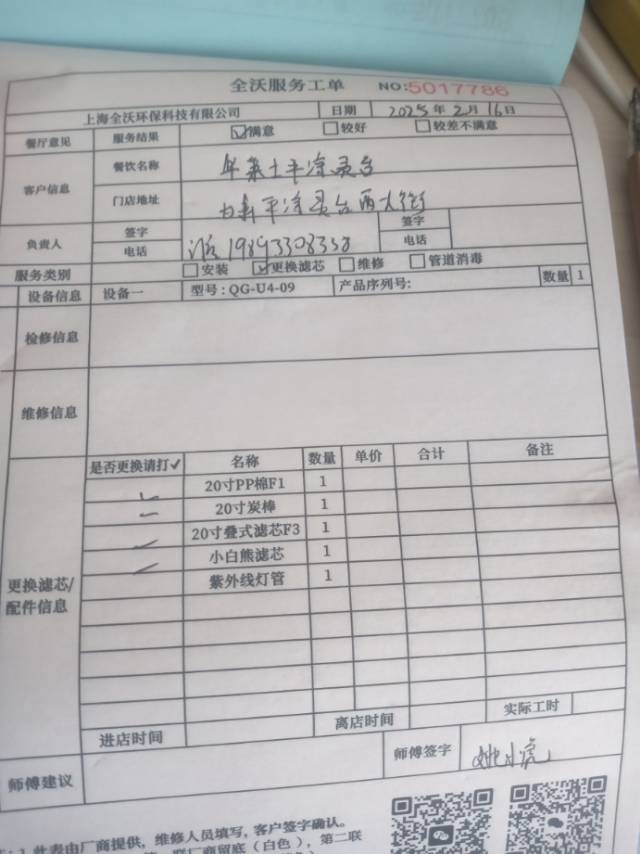 全沃服务工单 NO:5017786
上海全沃环保科技有限公司 日期 2025年2月16日
餐厅意见 服务结果 ☑满意 □较好 □较差不满意
客户信息 餐饮名称 华莱士平凉灵台
门店地址 平凉灵台西大街
负责人 签字 签字
电话 19893308338 电话
服务类别 □安装 ☑更换滤芯 □维修 □管道消毒
设备信息 设备一 型号:QG-U4-09 产品序列号: 数量 1
检修信息
维修信息
更换滤芯/配件信息 是否更换请打✓ 名称 数量 单价 合计 备注
✓ 20寸PP棉F1 1
✓ 20寸炭棒 1
✓ 20寸叠式滤芯F3 1
✓ 小白熊滤芯 1
紫外线灯管 1
进店时间 离店时间 实际工时
师傅建议 师傅签字 姚小虎
1 此表由厂商提供，维修人员填写，客户签字确认。
联厂商留底（白色），第二联